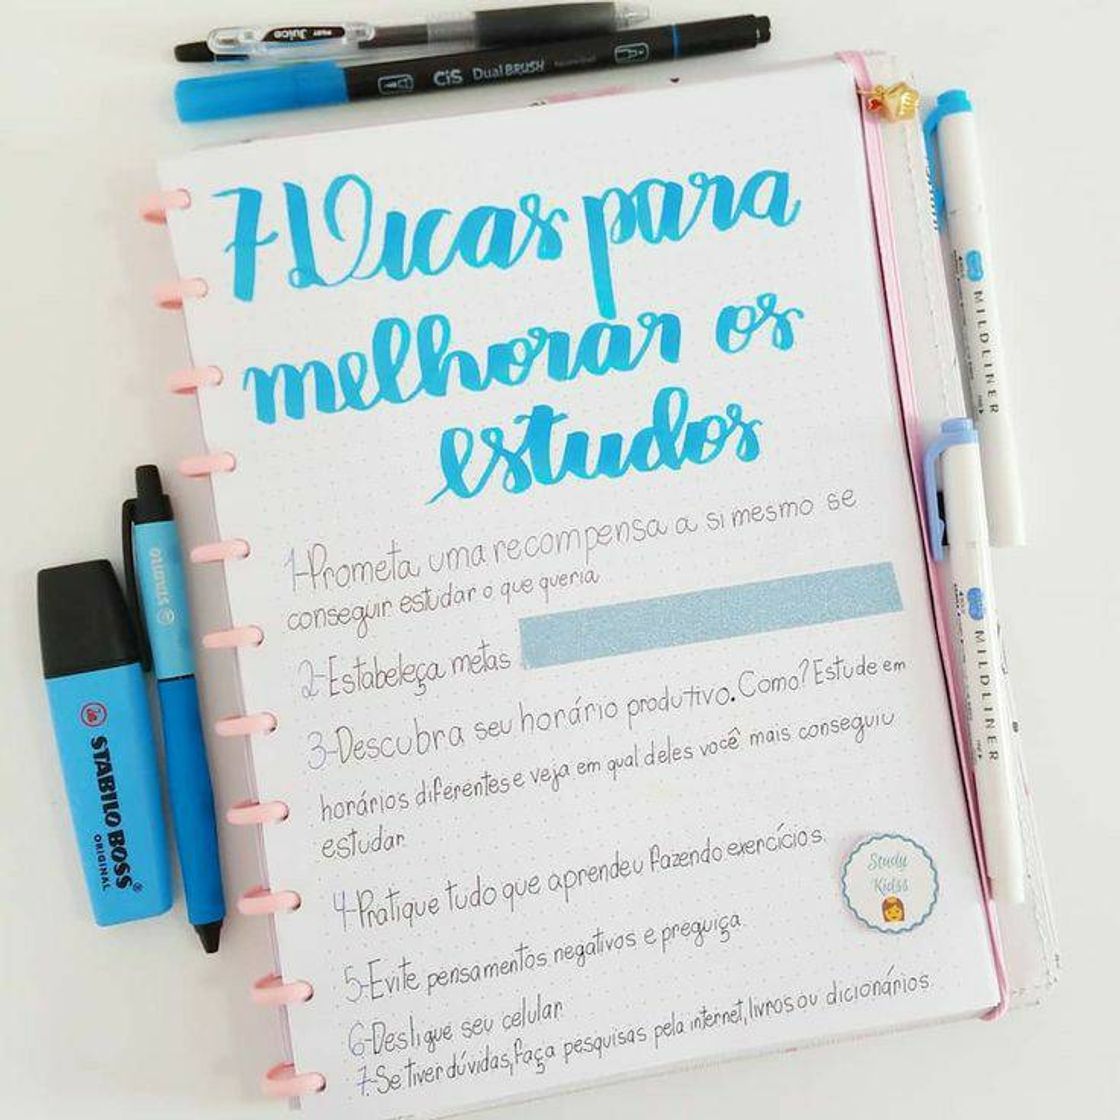 PILOT Juice
CiS Dual BRUSH
7 Dicas para
melhorar os
estudos
1-Prometa uma recompensa a si mesmo se
conseguir estudar o que queria
2-Estabeleça metas
3-Descubra seu horário produtivo. Como? Estude em
horários diferentes e veja em qual deles você mais conseguiu
estudar
4-Pratique tudo que aprendeu fazendo exercícios.
5-Evite pensamentos negativos e preguiça.
6-Desligue seu celular
7-Se tiver dúvidas, faça pesquisas pela internet, livros ou dicionários
Study
Kidss
STABILO BOSS
ORIGINAL
MILDLINER
MILDLINER